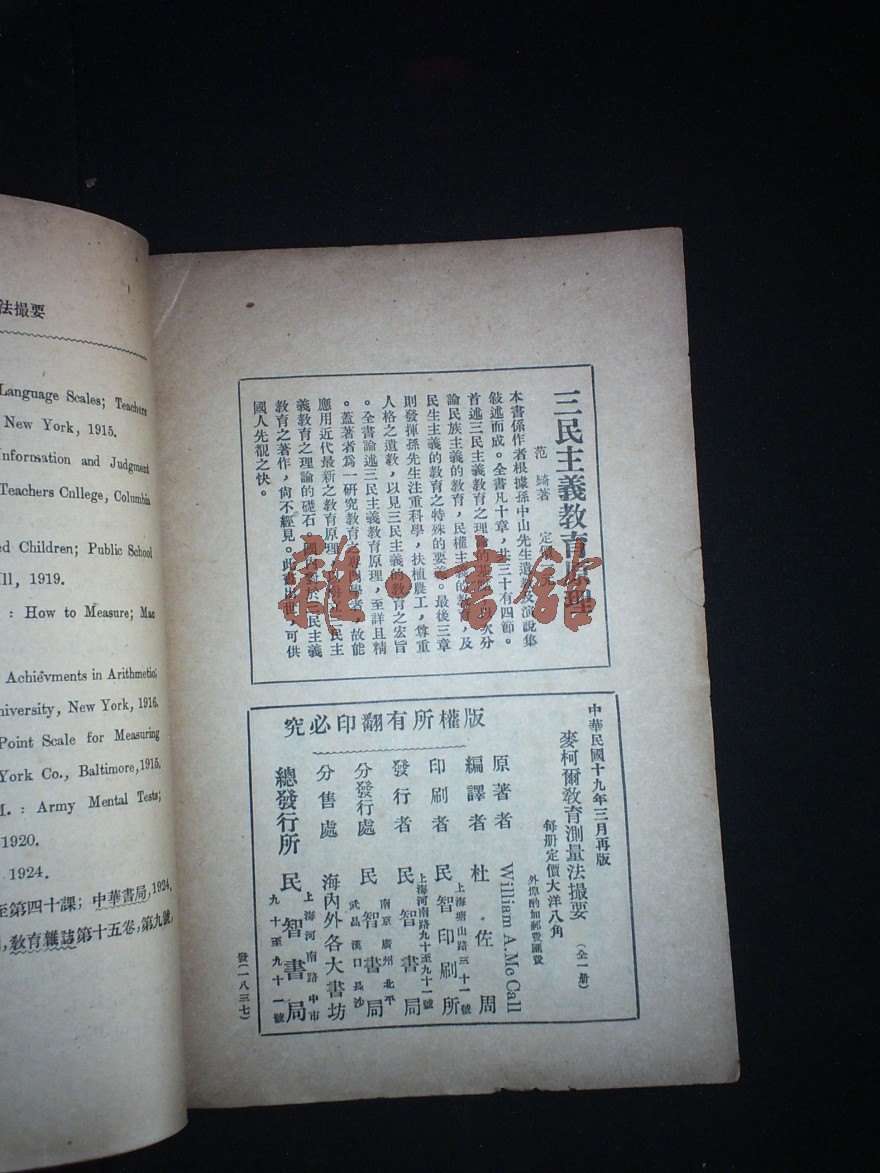 法撮要
Language Scales; Teachers
New York, 1915.
Information and Judgment
Teachers Cnllege, Columbia
ed Children; Public School
Ill, 1919.
: How to Measure; Mac
Achievments in Arithmetic;
niversity, New York, 1916.
Point Scale for Measuring
York Co., Baltimore, 1915.
M. : Army Mental Tests;
1920.
1924.
至第四十課;中華書局,1924.
敎育雜誌第十五卷,第九號,
三民主義敎育原理
范錡著 定價
本書係作者根據孫中山先生遺敎及演說集
敍述而成。全書凡十章,共三十有四節。
首述三民主義敎育之理論的基礎,次分
論民族主義的敎育,民權主義的敎育,及
民生主義的敎育之特殊的要。最後三章
則發揮孫先生注重科學,扶植農工,尊重
人格之遺敎,以見三民主義的敎育之宏旨
。全書論述三民主義敎育原理,至詳且精
。蓋著者爲一研究敎育之專門學者,故能
應用近代最新之敎育原理,以三民主
義敎育之理論的礎石。國內對於三民主義
敎育之著作,尙不經見。此書出世,可供
國人先覩之快。
中華民國十九年三月再版
麥柯爾敎育測量法撮要(全一册)
每册定價大洋八角
外埠酌加郵費匯費
版權所有翻印必究
原著者 William A. Mc Call
編譯者 杜佐周
印刷者 民智印刷所
上海塘山路三十一號
發行者 民智書局
上海河南路九十至九十一號
分發行處 民智書局
南京 廣州 北平
武昌 漢口 長沙
分售處 海內外各大書坊
總發行所 民智書局
上海河南路中市
九十至九十一號
發(一八三七)
雜·書館